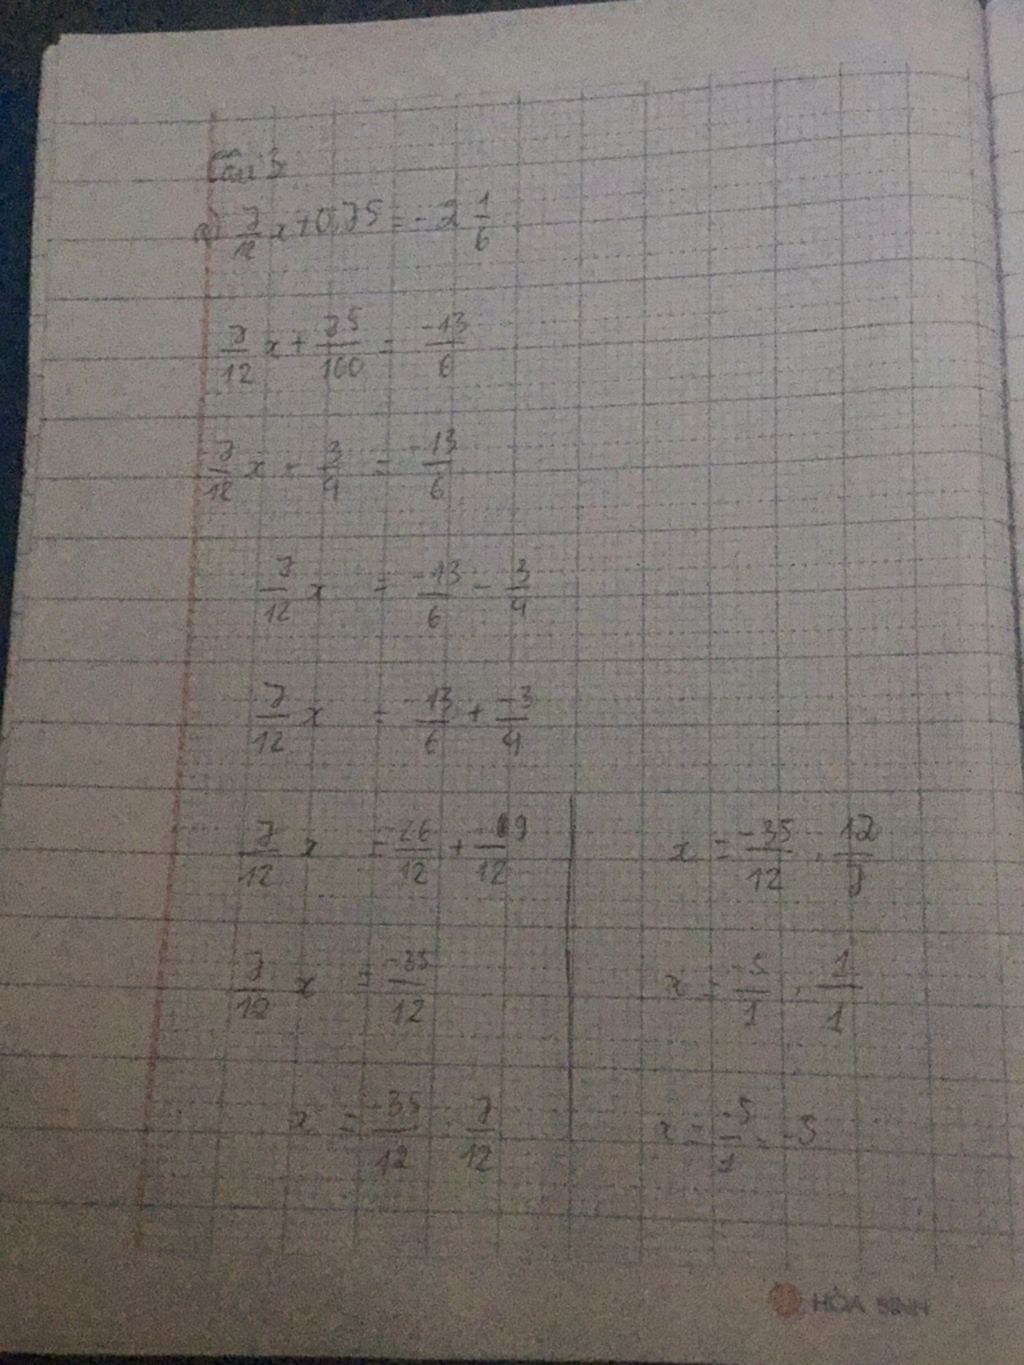 Câu 3
a) 7/12 x + 0,75 = -2 1/6
7/12 x + 75/100 = -13/6
7/12 x + 3/4 = -13/6
7/12 x = -13/6 - 3/4
7/12 x = -13/6 + -3/4
7/12 x = -26/12 + -9/12
7/12 x = -35/12
x = -35/12 : 7/12
x = -35/12 . 12/7
x = -5/1 . 1/1
x = -5/1 = -5
HÒA BÌNH